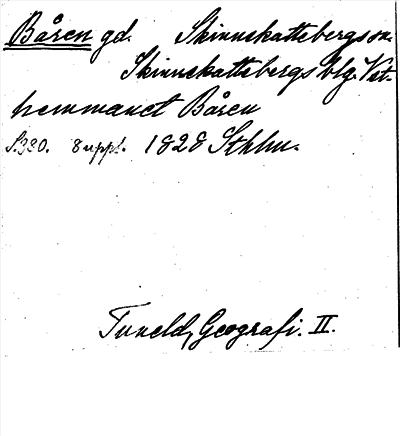 Båren gd. Skinnskattebergs sn.
Skinnskattebergs blg. Vst.
hemmanet Båren
S.330. 8 uppl. 1828 Sthlm.
Tuneld, Geografi. II.